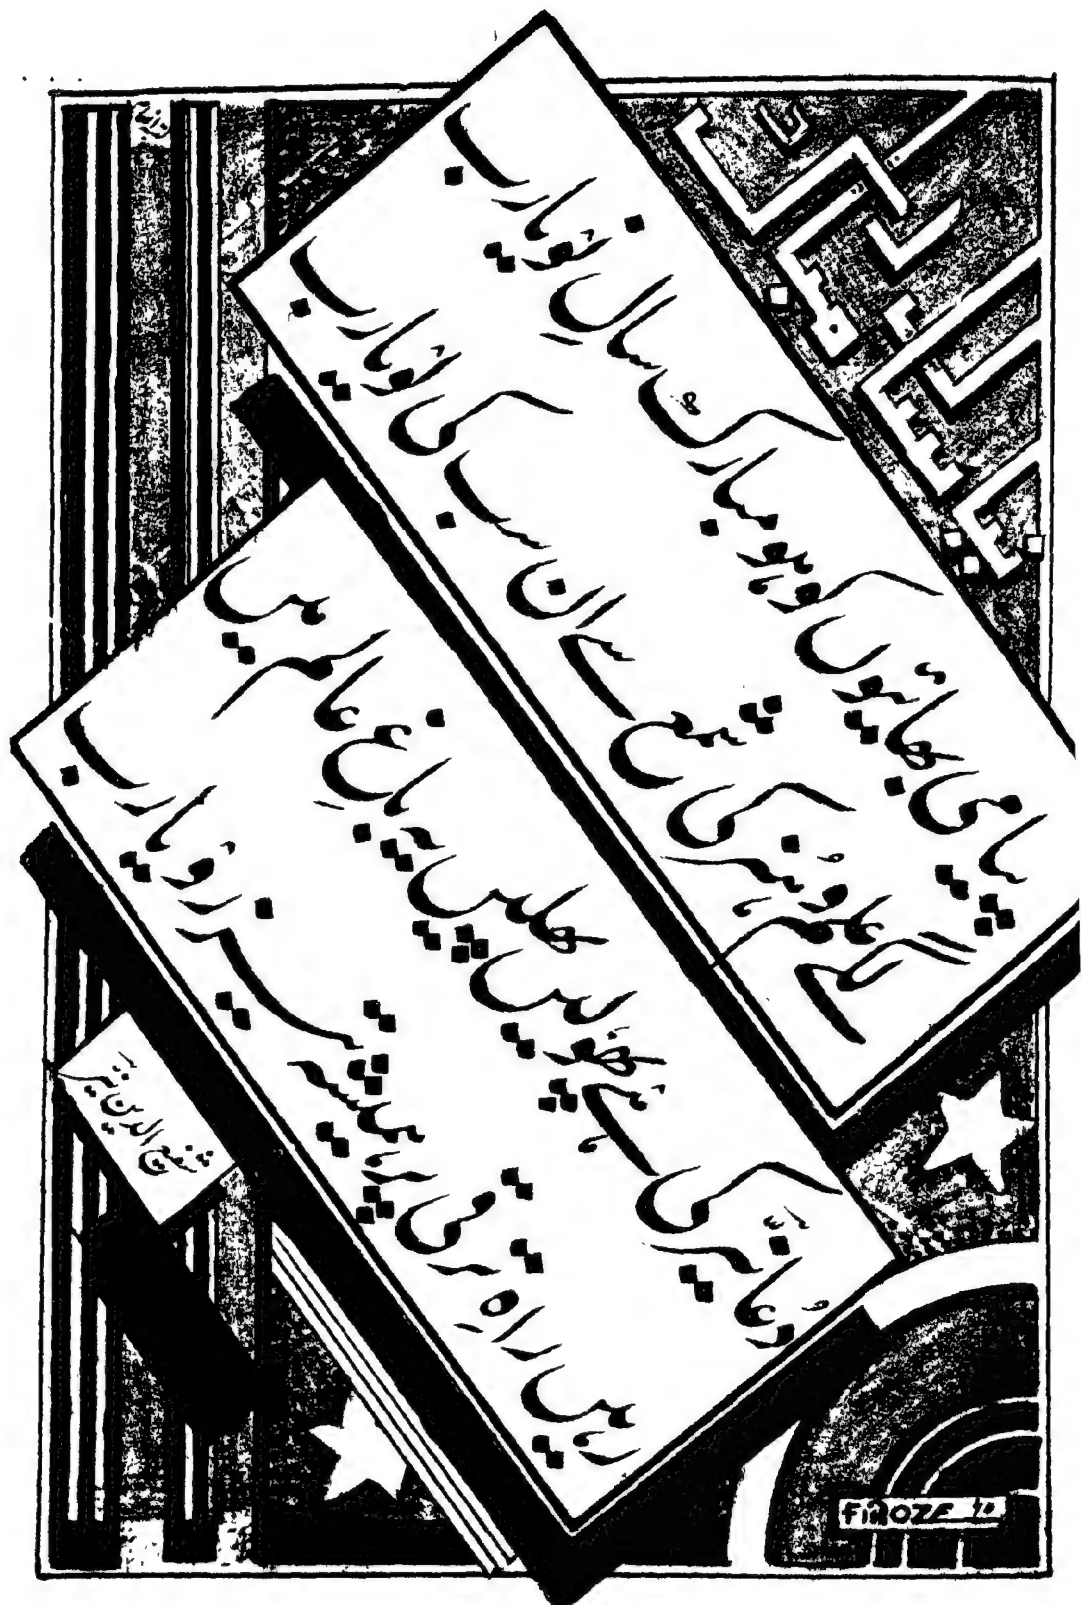 پیامی بھائیوں کو ہو مبارک سالِ نَو یارب
لگے علم و ہنر کی شمع سے ان سب کی لَو یارب
دُعا نیّر کی ہے پھولیں پھلیں یہ باغِ عالم میں
رہیں راہِ ترقی پر ہمیشہ تیز رَو یارب
شفیع الدین نیّر
FIROZE 90